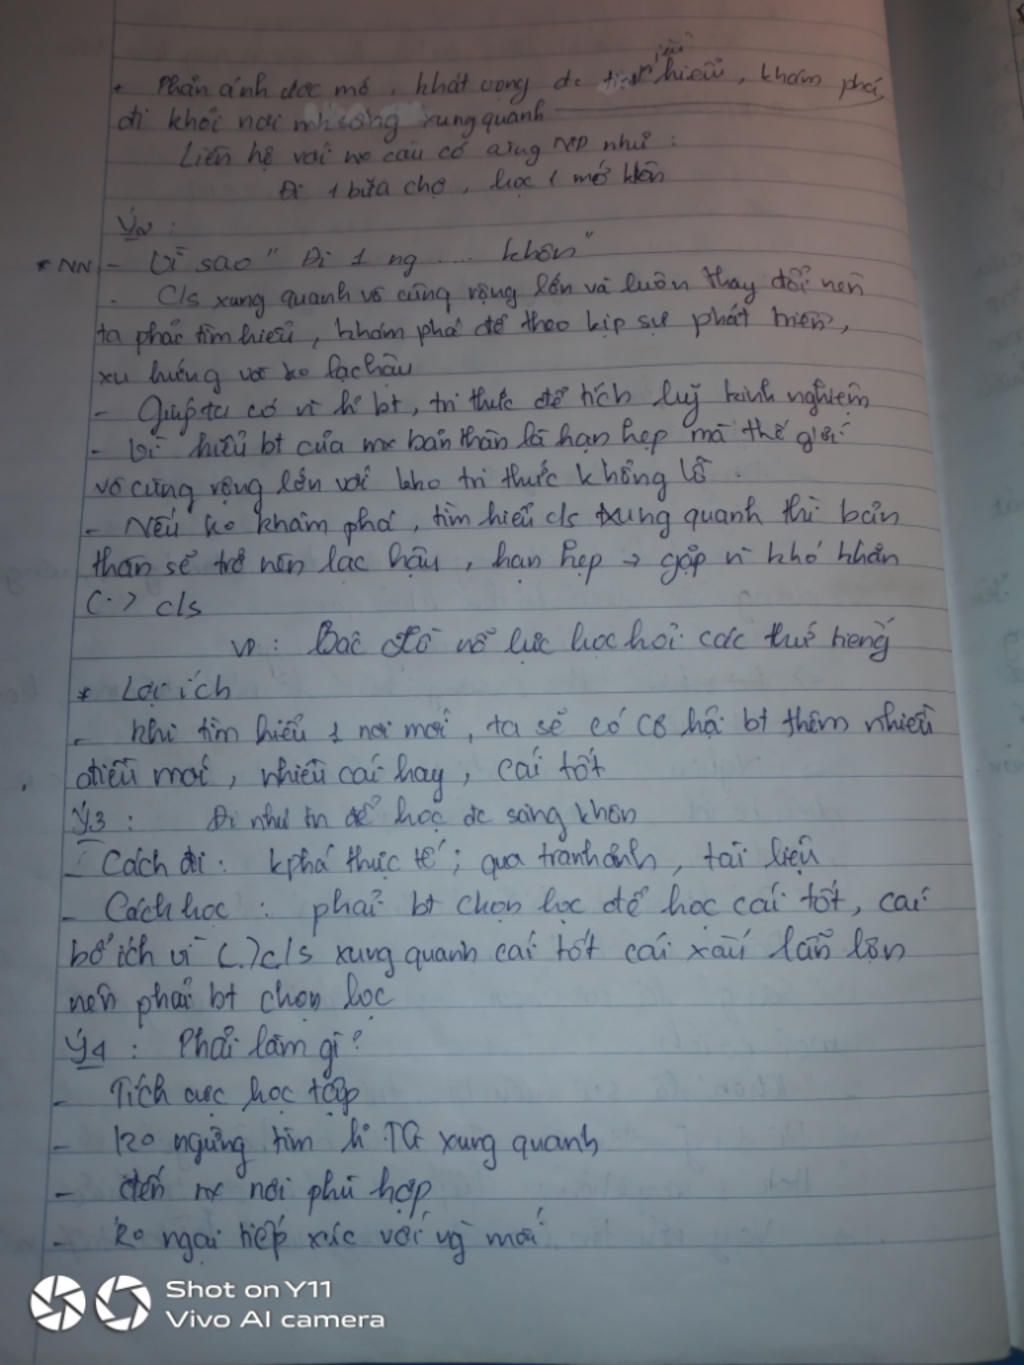 - Phản ánh ước mơ, khát vọng đc tìm hiểu, khám phá,
đi khỏi nơi xung quanh
Liên hệ với no câu có cùng ND như :
Đi 1 bữa chợ, học 1 mớ khôn
Ý2 :
* NN - Vì sao " Đi 1 ng .... khôn"
- C/s xung quanh vô cùng rộng lớn và luôn thay đổi nên
ta phải tìm hiểu, khám phá để theo kịp sự phát triển,
xu hướng và ko lạc hậu
- Giúp ta có n` h bt, tri thức để tích luỹ kinh nghiệm
- Vì hiểu bt của mx bản thân là hạn hẹp mà thế giới
vô cùng rộng lớn với kho tri thức khổng lồ.
- Nếu ko khám phá, tìm hiểu c/s xung quanh thì bản
thân sẽ trở nên lạc hậu, hạn hẹp → gặp n` khó khăn
(.) c/s
VD : Bác Hồ nỗ lực học hỏi các thứ tiếng
* Lợi ích
- Khi tìm hiểu 1 nơi mới, ta sẽ có cơ hội bt thêm nhiều
điều mới, nhiều cái hay, cái tốt
Ý3 : Đi như tn để học đc sàng khôn
- Cách đi : kphá thực tế ; qua tranh ảnh, tài liệu
- Cách học : phải bt chọn lọc để học cái tốt, cái
bổ ích vì (.) c/s xung quanh cái tốt cái xấu lẫn lộn
nên phải bt chọn lọc
Ý4 : Phải làm gì ?
- Tích cực học tập
- ko ngừng tìm h TG xung quanh
- đến nx nơi phù hợp
- ko ngại tiếp xúc với vs mới
Shot on Y11
Vivo AI camera